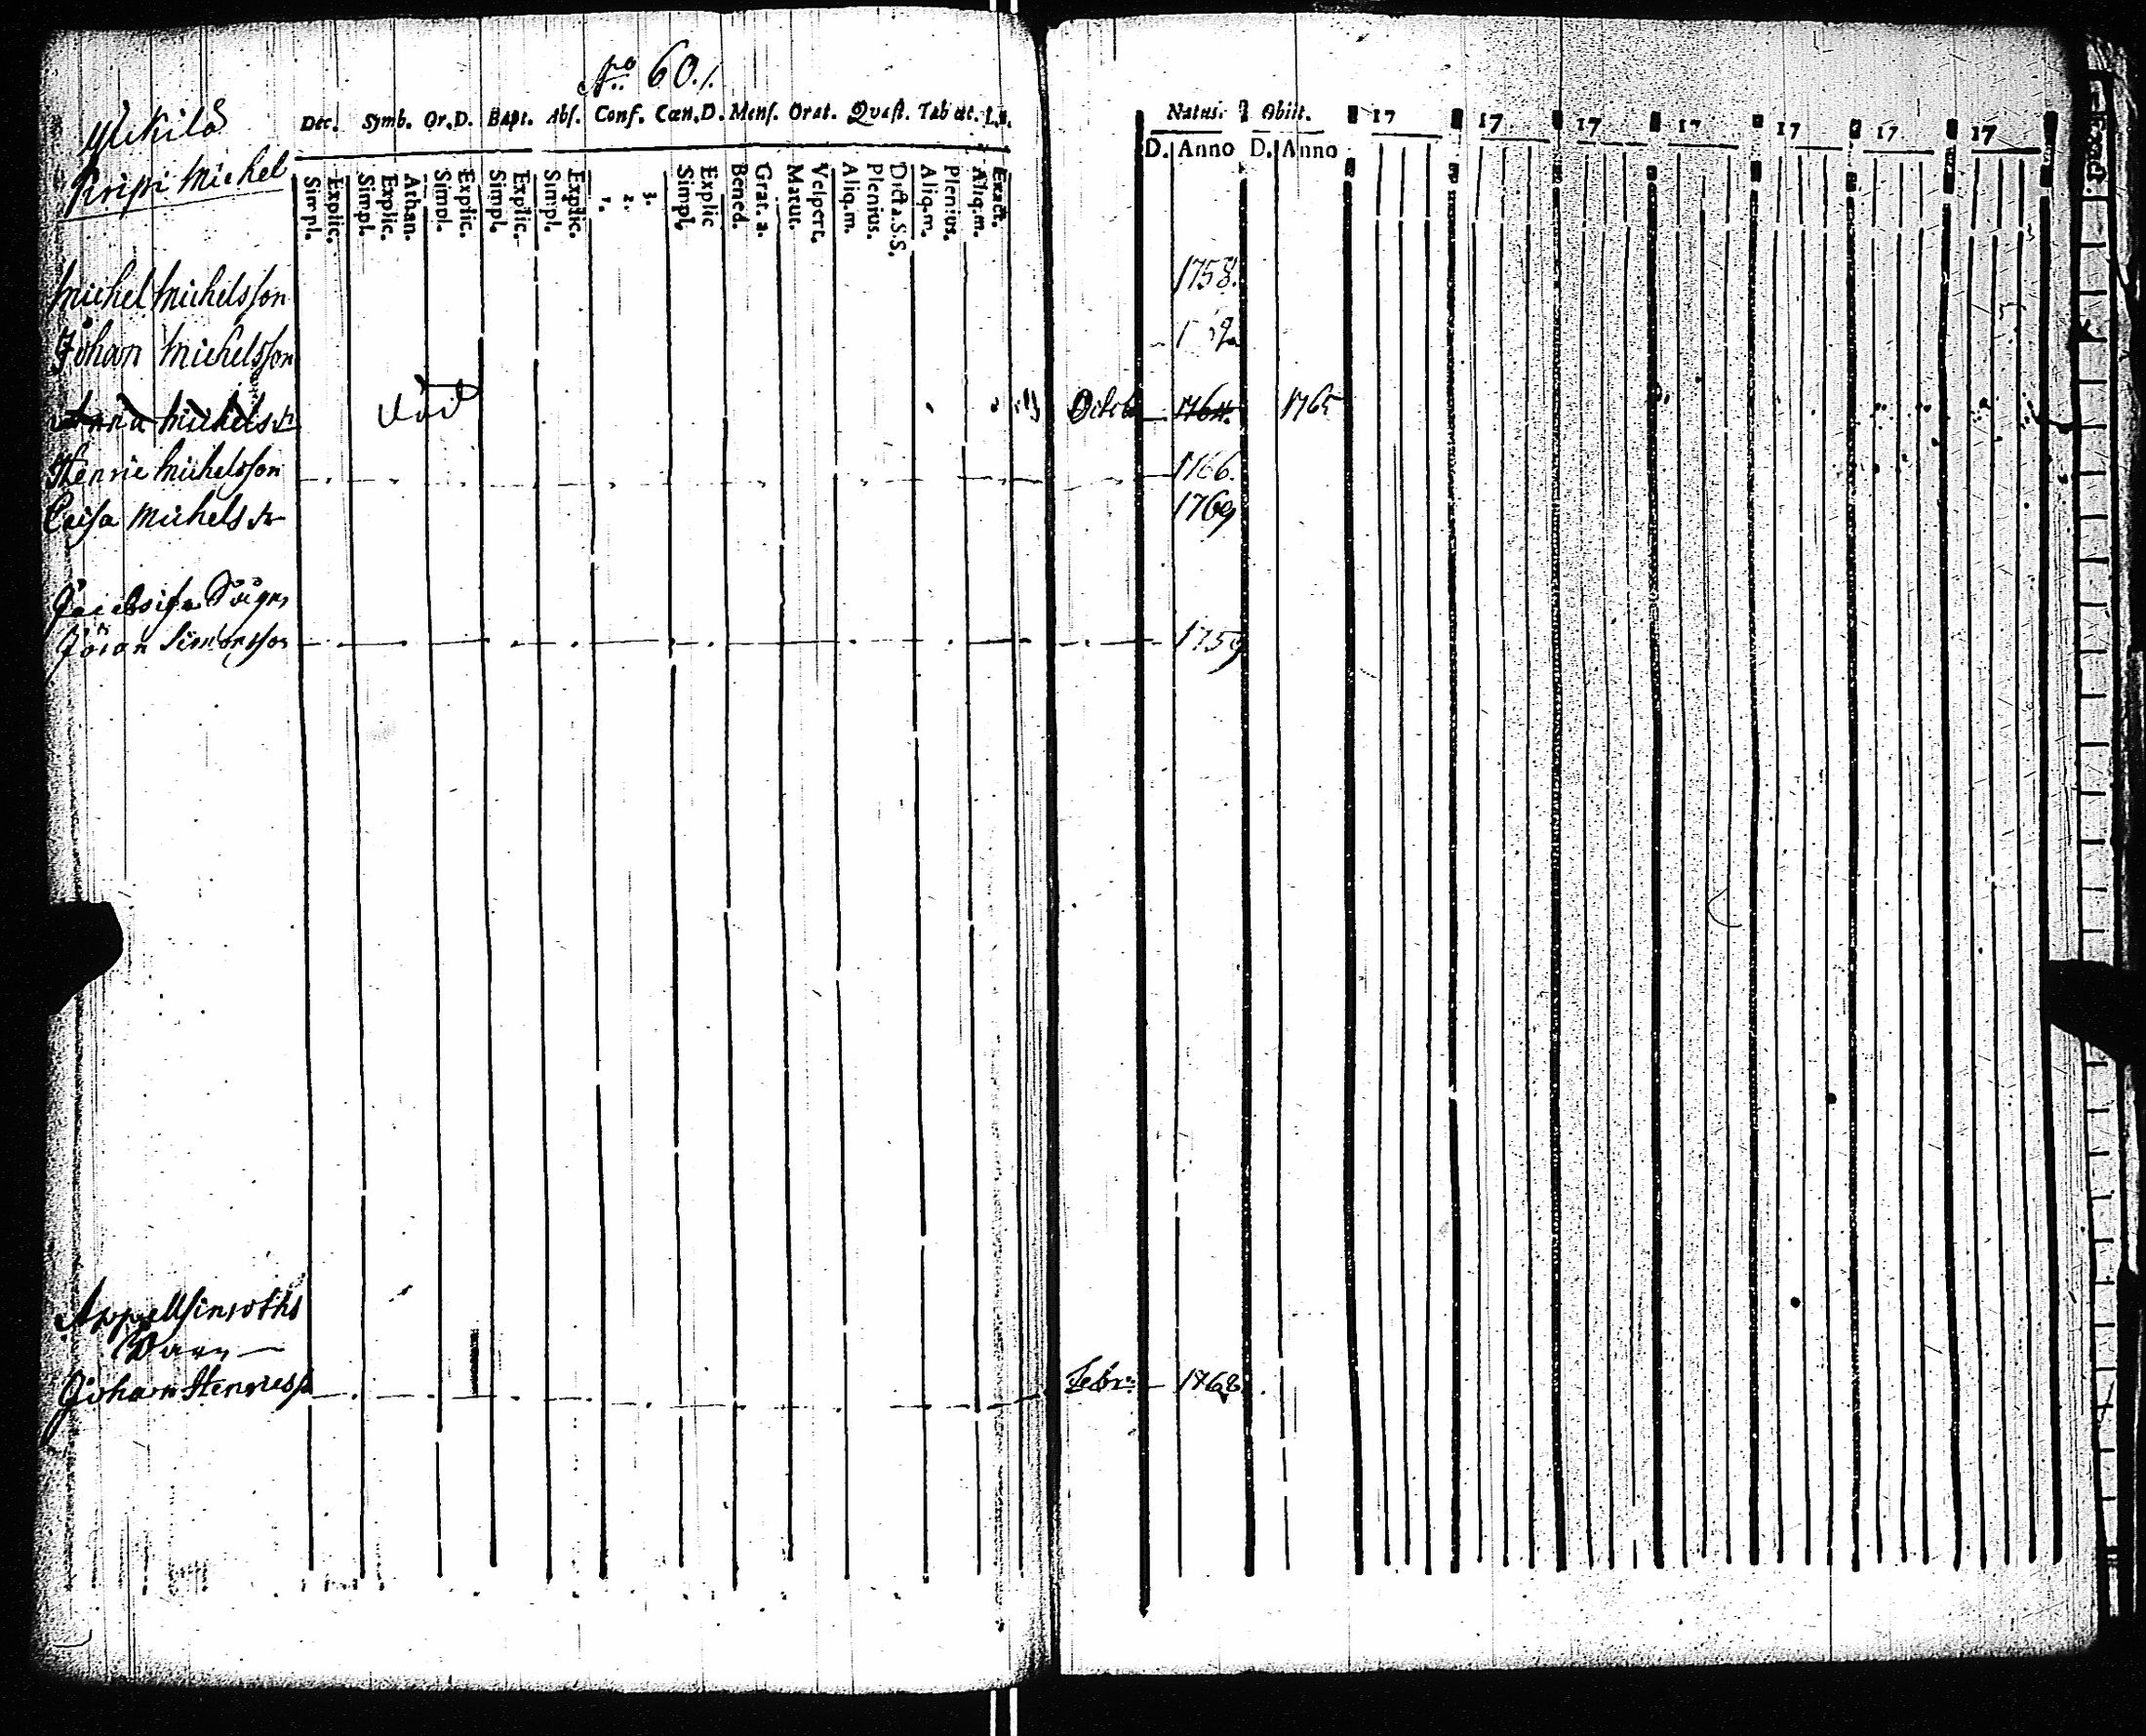 No 60.
Ylikilå
Kripi Michel
Dec. Symb. Or. D. Bapt. Abs. Conf. Cœn. D. Mens. Orat. Quæst. Tab. œc.
Simpl. Explic. Simpl. Explic. Athan. Simpl. Explic. Simpl. Explic. Simpl. Explic. 1. 2. 3. Simpl. Explic Bened. Grat. a. Matut. Vespert. Aliq.m. Plenius. Dicta.S.S. Aliq.m. Plenius. Aliq.m. Exacte.
Natus. Obiit. 17 17 17 17 17 17 17
D. Anno D. Anno
Michel Michelsson 1758.
Johan Michelsson
Anna Michels dr död Octob 1764. 1765
Henric Michelsson 1766.
Caisa Michels dr 1769
Johan Simonsson 1759
Barn
Johan Henricss Febr: 1768